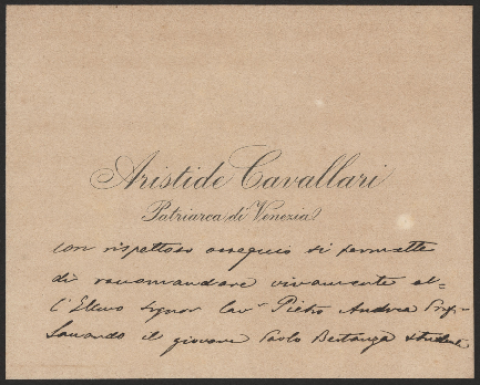 Aristide Cavallari
Patriarca di Venezia
con rispettoso ossequio si permette
di raccomandare vivamente al=
l'Ill signor Cavr Pietro Andrea
il giovane Paolo studente